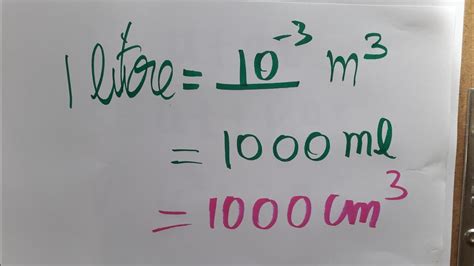 1 litore = 10⁻³ m³
= 1000 ml
= 1000 cm³